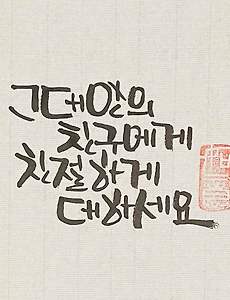 그대안의
친구에게
친절하게
대하세요